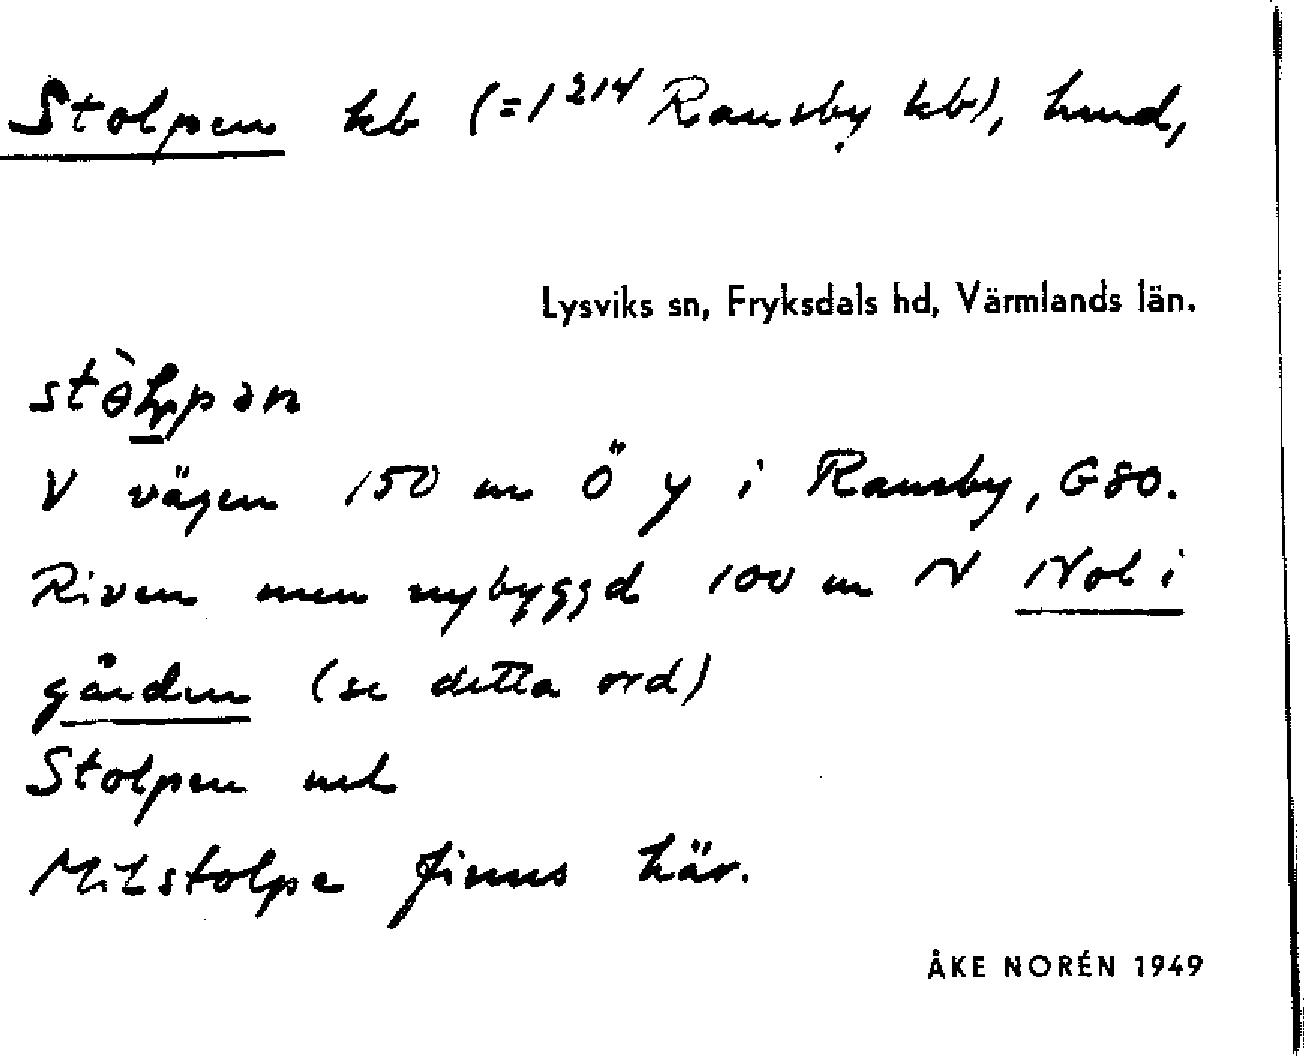 Stolpen kb (=1²¹⁴ Ransby kb), hmd,
Lysviks sn, Fryksdals hd, Värmlands län.
V vägen 150 m Ö y i Ransby, G80.
Riven men nybyggd 100 m N Nol i
gården (se detta ord)
Stolpen
Milstolpe finns här.
ÅKE NORÉN 1949